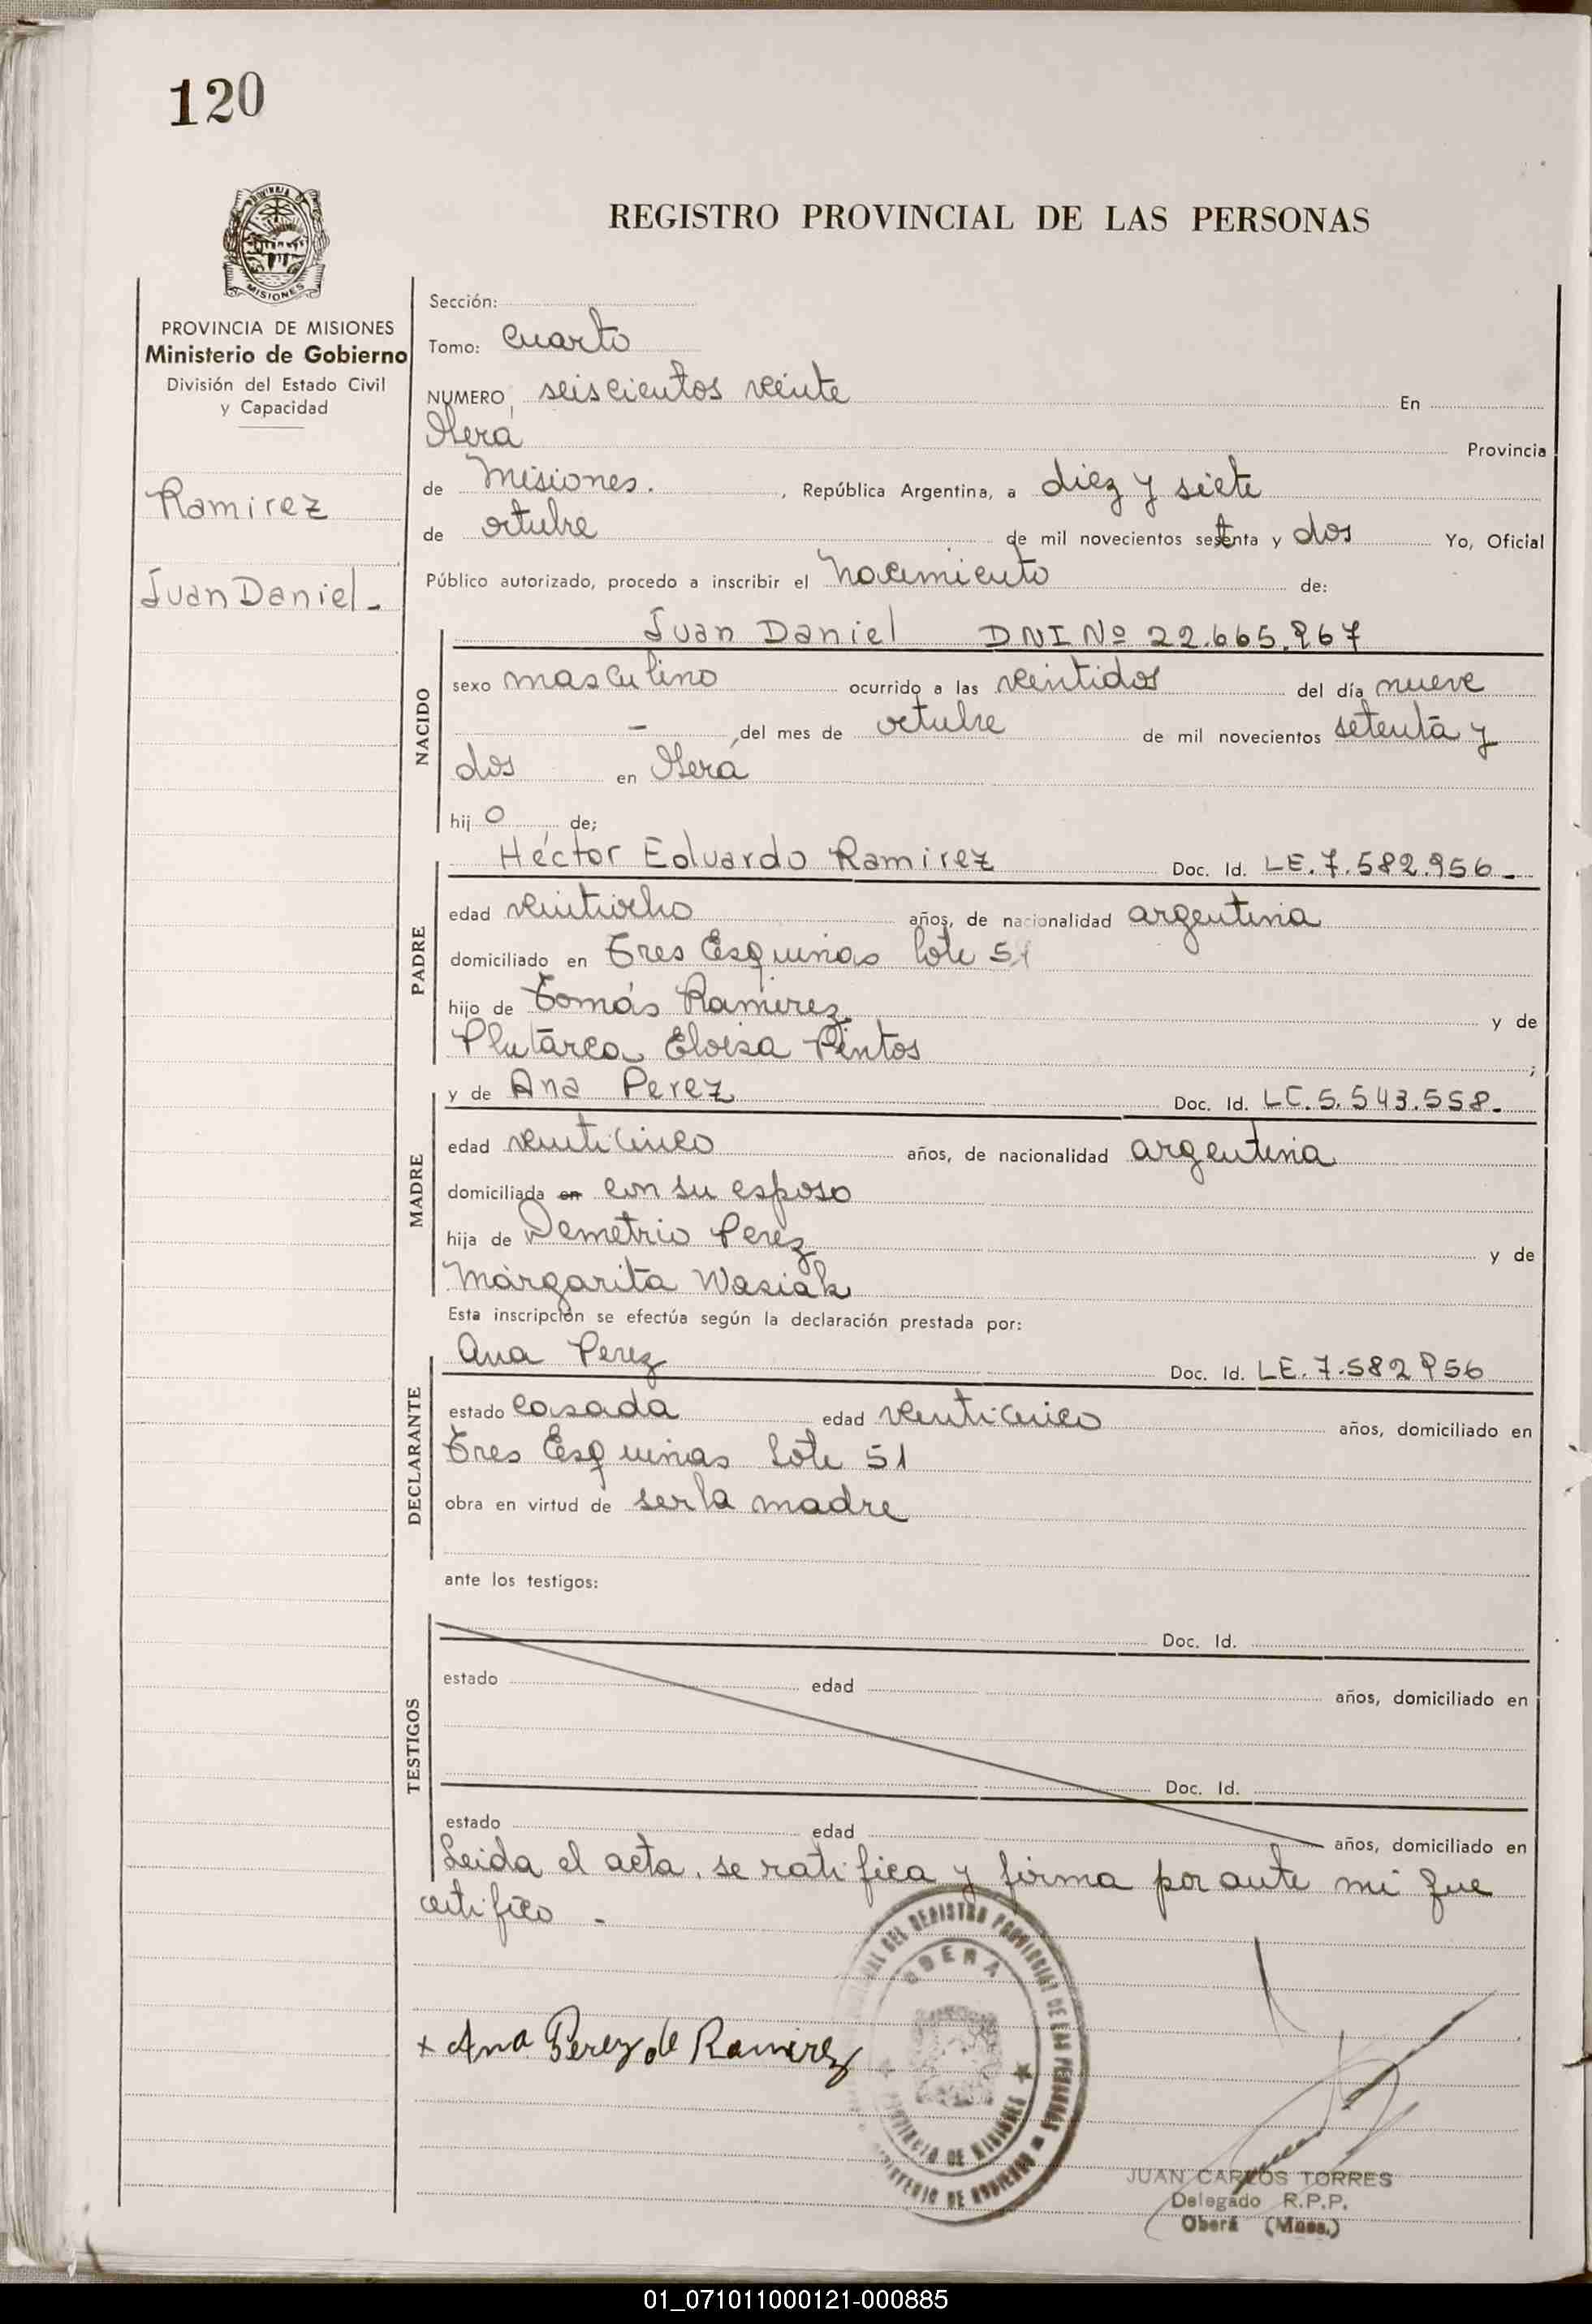 120
REGISTRO PROVINCIAL DE LAS PERSONAS
MISIONES
PROVINCIA DE MISIONES
Ministerio de Gobierno
División del Estado Civil
y Capacidad
Ramirez
Juan Daniel-
Sección:
Tomo: Cuarto
NUMERO seiscientos veinte En
Oberá Provincia
de Misiones. , República Argentina, a diez y siete
de octubre de mil novecientos setenta y dos Yo, Oficial
Público autorizado, procedo a inscribir el nacimiento de:
NACIDO
Juan Daniel DNI Nº 22.665.967
sexo masculino ocurrido a las veintidos del día nueve
- del mes de octubre de mil novecientos setenta y
dos en Oberá
hijo de;
PADRE
Héctor Eduardo Ramirez Doc. Id. LE.7.582.956-
edad veintiocho años, de nacionalidad argentina
domiciliado en Tres Esquinas lote 51
hijo de Tomás Ramirez y de
Plutarca Eloisa Pintos ;
MADRE
y de Ana Perez Doc. Id. LC.5.543.558-
edad veinticinco años, de nacionalidad argentina
domiciliada en con su esposo
hija de Demetrio Perez y de
Margarita Wasiak
Esta inscripción se efectúa según la declaración prestada por:
DECLARANTE
Ana Perez Doc. Id. LE.7.582956
estado casada edad veinticinco años, domiciliado en
Tres Esquinas lote 51
obra en virtud de ser la madre
ante los testigos:
TESTIGOS
Doc. Id.
estado edad años, domiciliado en
Doc. Id.
estado edad años, domiciliado en
Leida el acta, se ratifica y firma por ante mi que
certifico -
DEL REGISTRO PROVINCIAL DE LAS PERSONAS
OBERA
PROVINCIA DE MISIONES
MINISTERIO DE GOBIERNO
x Ana Perez de Ramirez
JUAN CARLOS TORRES
Delegado R.P.P.
Oberá (Mnes.)
01_071011000121-000885